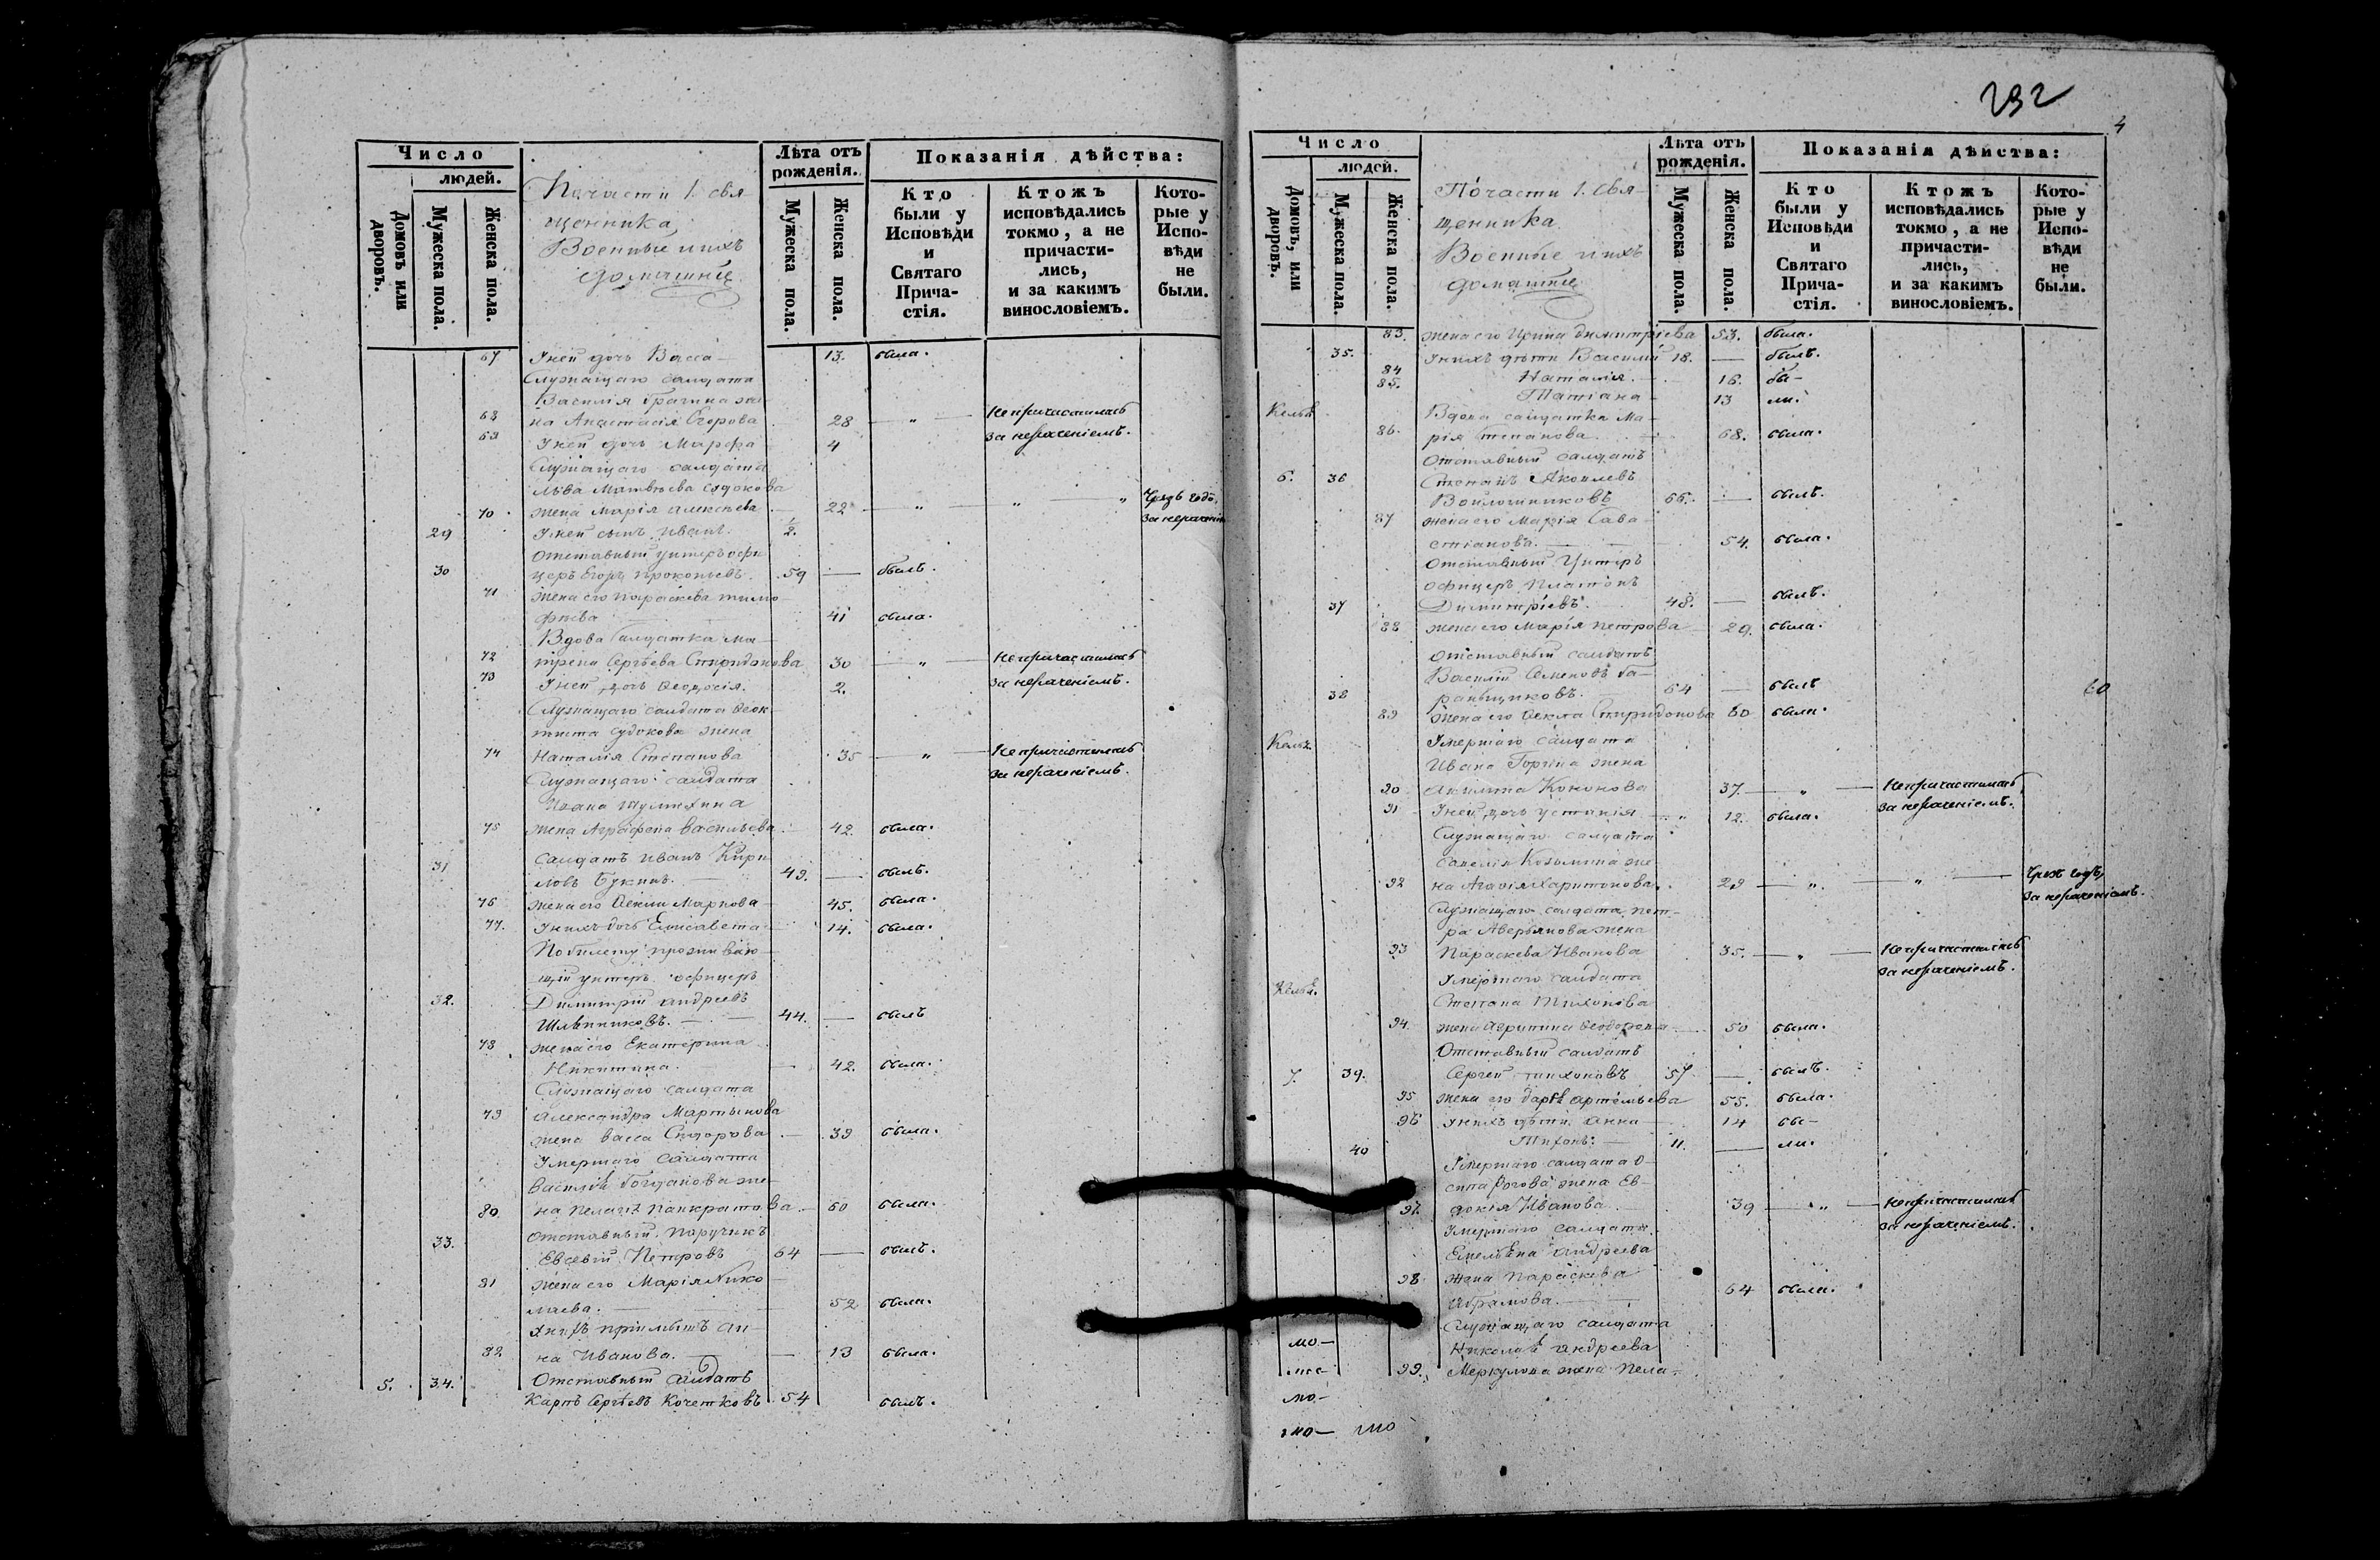 292
4
Число
людей.
Домовъ или дворовъ.
Мужеска пола.
Женска пола.
По части 1. свя-
щенника
Военные и ихъ
домашніе
Лѣта отъ рожденія.
Мужеска пола.
Женска пола.
Показанія дѣйства:
Кто были у Исповѣди и Святаго Прича-стія.
Ктожъ исповѣдались токмо, а не причасти-лись, и за какимъ винословіемъ.
Кото-рые у Испо-вѣди не были.
67 У ней дочь Васса 13. была.
Служащаго салдата
Василія Брагина же-
68 на Анастасія Егорова 28 " Не причастилась
69 У ней дочь Марфа 4 за нераченіемъ.
Служащаго салдата
Льва Матвѣева Судокова
70 жена Марія Алексѣева 22 " " " Чрезъ годъ,
29 У ней сынъ Иванъ. 1/2. за нераченіемъ
Отставный унтеръ офи-
30 церъ Егоръ Прокопьевъ. 59 — былъ.
71 жена его Параскева Тимо-
фѣева 41 была.
Вдова салдатка Ма-
72 трена Сергѣева Спиридонова 30 " Не причастилась
73 У ней дочь Ѳеодосія. 2. за нераченіемъ.
Служащаго салдата Ѳеок-
тиста Судокова жена
74 Наталія Степанова 35 " Не причастилась
Служащаго салдата за нераченіемъ.
Ивана
75 жена Аграфена Васильева 42. была.
Салдатъ Иванъ Кири-
31 ловъ Букинъ. 49. — былъ.
76 жена его Ѳекла Маркова 45. была.
77. У нихъ дочь Елисавета 14. была.
По билету прожива́ю-
щій унтеръ офицеръ
32. Димитрій Андреевъ
Шляпниковъ. — 44. — былъ
78 жена его Екатерина
Никитина. 42. была.
Служащаго салдата
79 Александра Мартынова
жена Васса Сидорова 39 была.
Умершаго салдата
Василія Богданова же-
80. на Пелагія Панкратова 60 была.
Отставный Поручикъ
33. Евсевій Петровъ 64 — былъ.
81 жена его Марія Нико-
лаева. — 52 была.
У нихъ пріемышъ Ан-
82 на Иванова. — 13 была.
5. 34. Отставный салдатъ
Карпъ Сергѣевъ Кочетковъ 54 былъ.
Число
людей.
Домовъ, или дворовъ.
Мужеска пола.
Женска пола.
По части 1. свя-
щенника
Военные и ихъ
домашніе
Лѣта отъ рожденія.
Мужеска пола.
Женска пола.
Показанія дѣйства:
Кто были у Исповѣди и Святаго Прича-стія.
Ктожъ исповѣдались токмо, а не причасти-лись, и за какимъ винословіемъ.
Кото-рые у Испо-вѣди не были.
83. жена его Ирина Димитріева 53. была.
35. У нихъ дѣти Василій 18. — былъ.
84 Наталія. 16. бы-
85. Татіана 13 ли.
Келья Вдова салдатка Ма-
86. рія Степанова. 68. была.
Отставный салдатъ
6. 36 Степанъ Яковлевъ
Войлошниковъ 66. — былъ.
87 жена его Марія Сава-
стіанова. — 54. была.
Отставный Унтеръ
офицеръ Платонъ
37 Димитріевъ. 48. — былъ.
88 жена его Марія Петрова 29. была.
Отставный салдатъ
Василій Семеновъ Ба-
38 ранщиковъ. 64 — былъ 60
89 жена его Ѳекла Спиридонова 60 была.
Келья. Умершаго салдата
Ивана Горина жена
90 Акилина Кононова 37. " Не причастилась
91 У ней дочь Устинія. 12. была. за нераченіемъ.
Служащаго салдата
Савелія Козьмина же-
92 на Агафія Харитонова. 29 " " Чрезъ годъ,
за нераченіемъ.
Служащаго салдата Пет-
ра Аверьянова жена
93 Параскева Иванова 35. " Не причастилась
Умершаго салдата за нераченіемъ.
Келья. Степана Тихонова
94. жена Агрипина Ѳеодорова 50 была.
Отставный салдатъ
7. 39. Сергей Тихоновъ 57 — былъ.
95 жена его Дарья Артемьева 55. была.
96 У нихъ дѣти Анна 14 бы-
40 Тихонъ: — 11. — ли.
Умершаго салдата О-
сипа Рогова жена Ев-
97. докія Иванова. 39 " Не причастилась
Умершаго салдата за нераченіемъ.
Емельяна Андреева
98. жена Параскева
Абрамова. — 64 была.
Служащаго салдата
мо- Николая Андреева
99. Меркулова жена Пела-
мо-
мо- мо